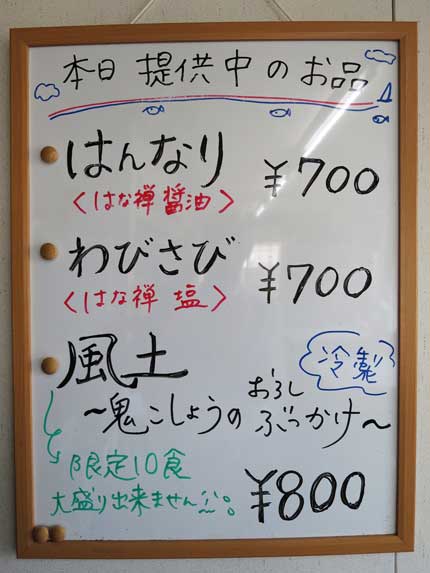 本日 提供中のお品
はんなり ¥700
〈はな禅 醤油〉
わびさび ¥700
〈はな禅 塩〉
風土 冷製
おろし
〜鬼こしょうのぶっかけ〜
限定10食
大盛り出来ません。
¥800